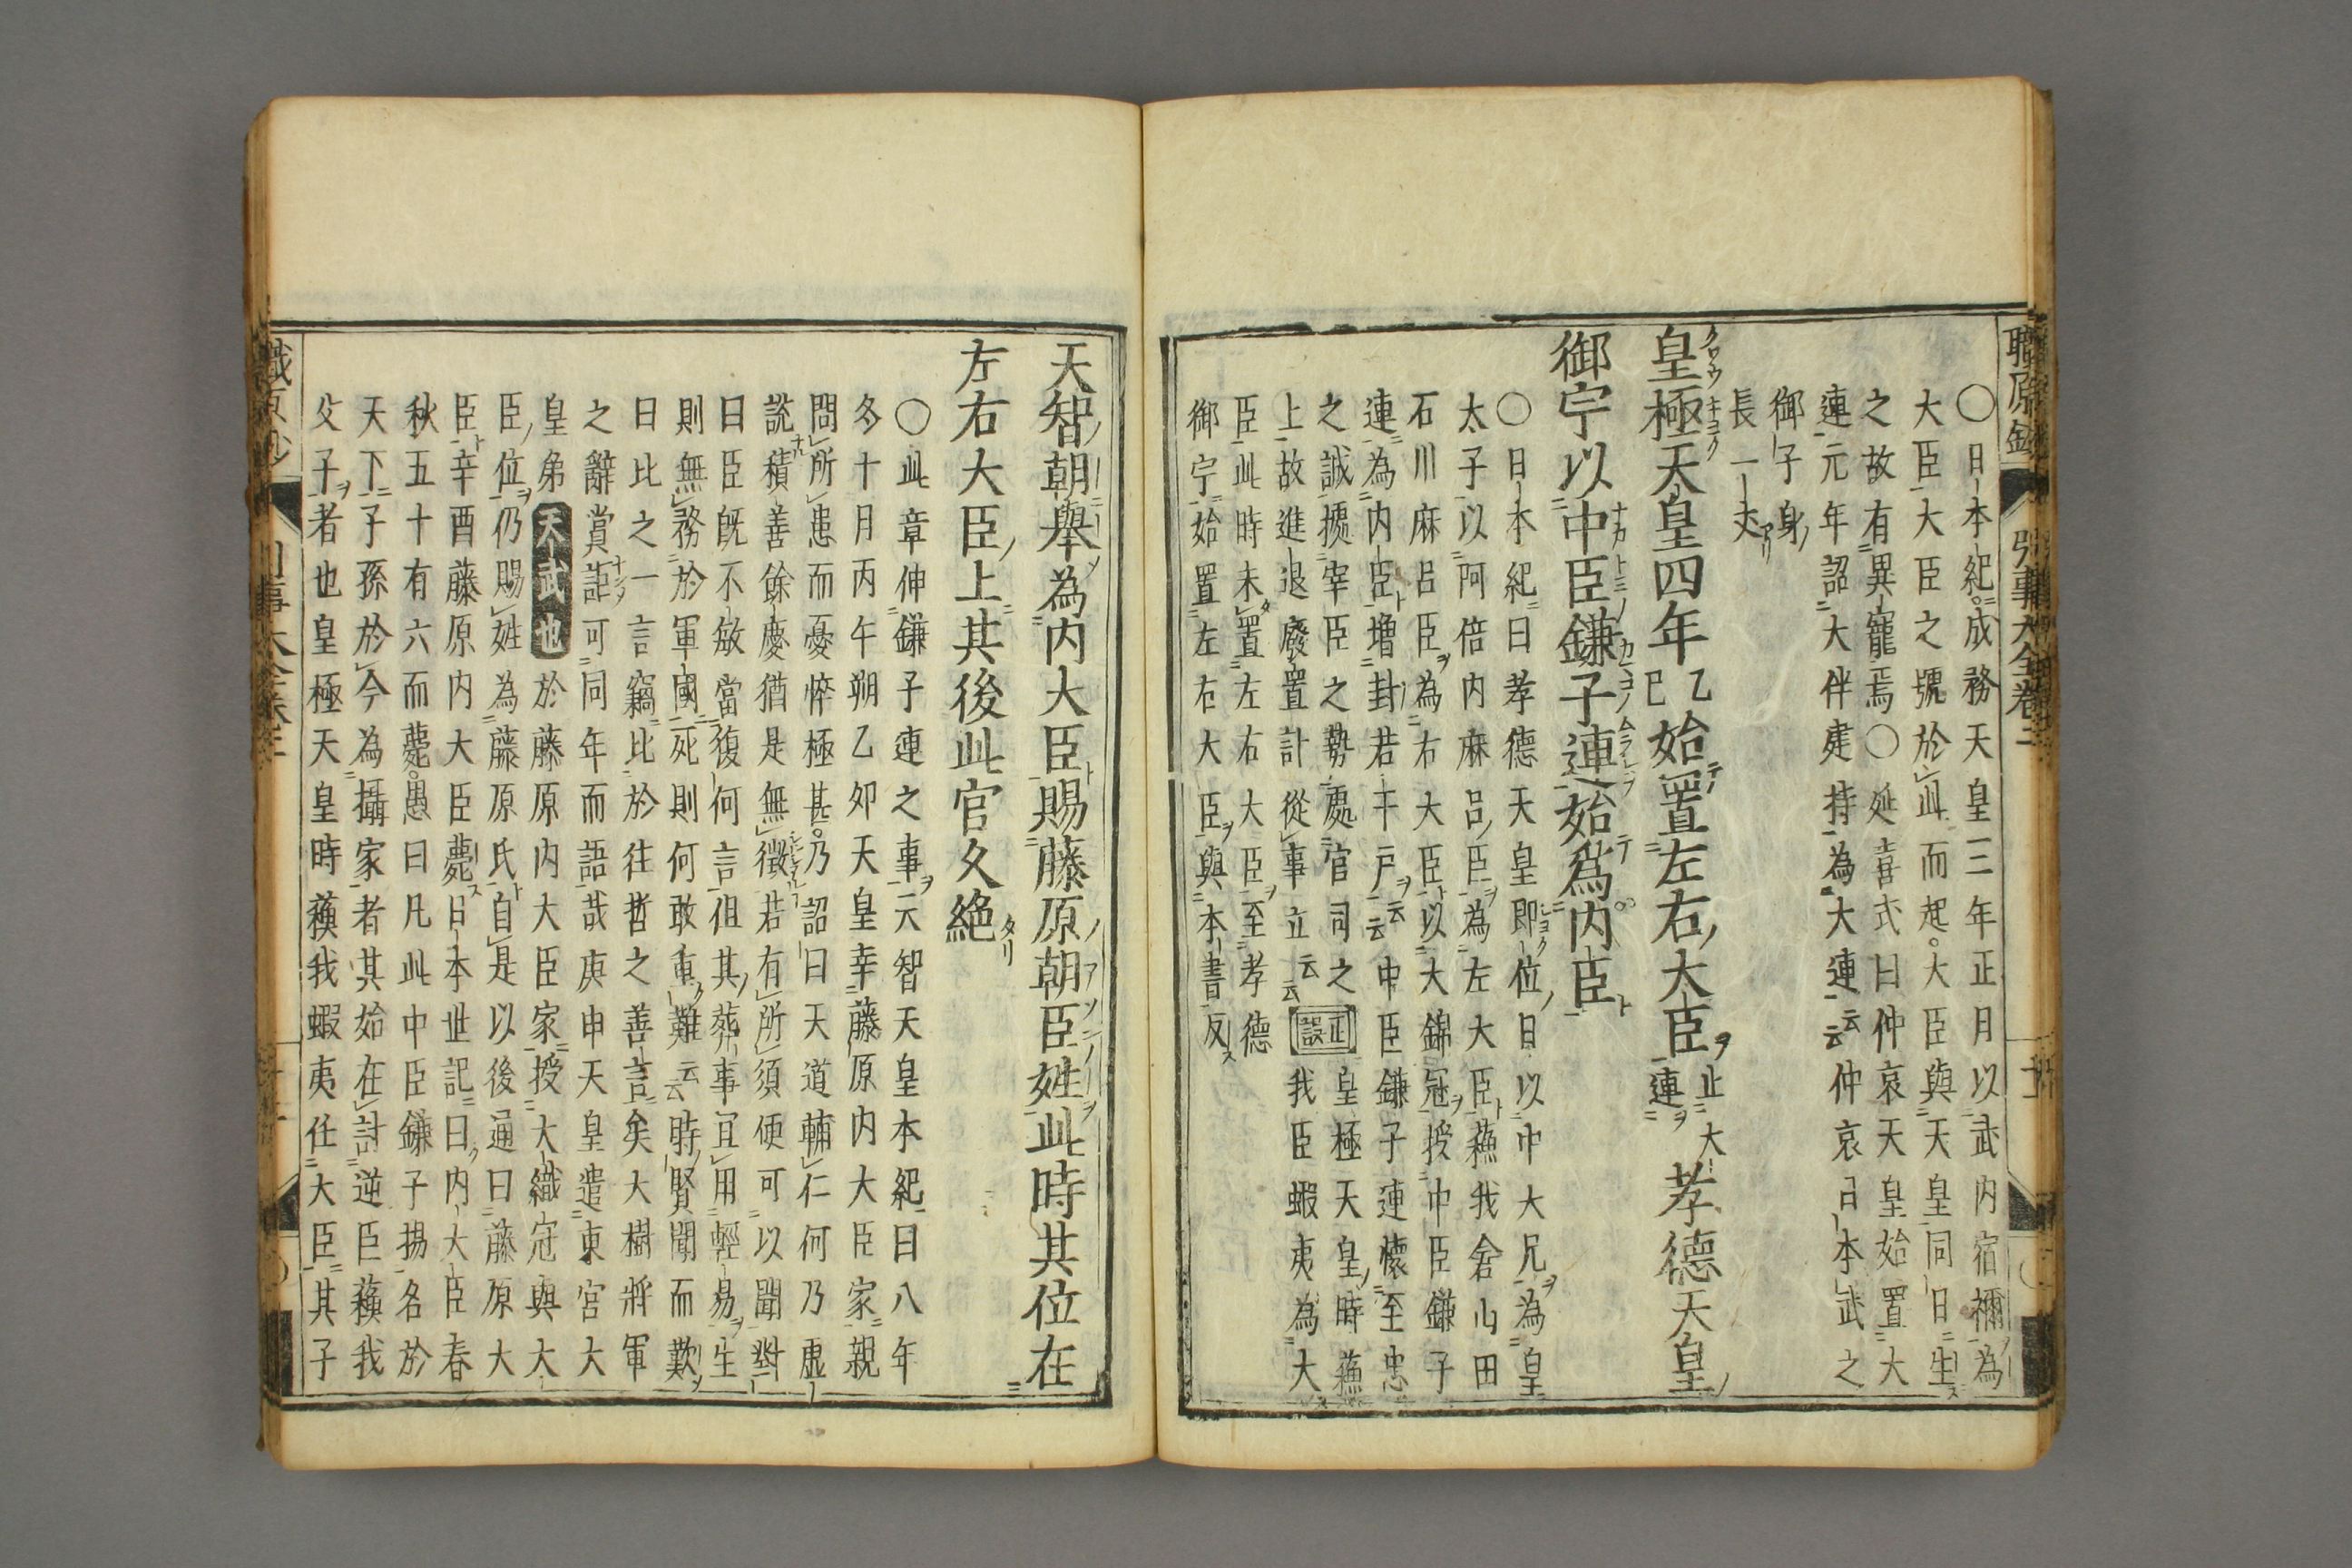 〇日本紀成務天皇三年正月以武内宿禰為
大臣大臣之號於此而起大臣與天皇同日生
之故有異寵焉〇延喜式曰仲哀天皇始置大
連元年詔大伴建持為大連云云仲哀日本武之
御子身
長一丈
皇極天皇四年乙巳始置左右大臣止大連孝德天皇
御宇以中臣鎌子連始爲内臣
〇日本紀曰孝德天皇即位日以中大兄為皇
太子以阿倍内麻呂臣為左大臣蘓我倉山田
石川麻呂臣為右大臣以大錦冠授中臣鎌子
連為内臣増封若干戸云云中臣鎌子連懷至忠
之誠據宰臣之勢處官司之
上故進退廢置計從事立云云正誤皇極天皇時蘓我臣蝦夷為大
臣此時未置左右大臣至孝德
御宇始置左右大臣與本書反
天智朝舉為内大臣賜藤原朝臣姓此時其位在
左右大臣上其後此官久絶
〇此章伸鎌子連之事天智天皇本紀曰八年
冬十月丙午朔乙卯天皇幸藤原内大臣家親
問所患而憂悴極甚乃詔曰天道輔仁何乃虛
説積善餘慶猶是無徵若有所須便可以聞對
曰臣既不敏當復何言但其葬事宜用輕易生
則無務於軍國死則何敢重難云云時賢聞而歎
曰比之一言竊比於往哲之善言矣大樹將軍
之辭賞詎可同年而語哉庚申天皇遣東宮大
皇弟天武也於藤原内大臣家授大織冠與大
臣位仍賜姓為藤原氏自是以後通曰藤原大
臣辛酉藤原内大臣薨日本世記曰内大臣春
秋五十有六而薨愚曰凡此中臣鎌子揚名於
天下子孫於今為攝家者其始在計逆臣蘓我
父子者也皇極天皇時蘓我蝦夷任大臣其子